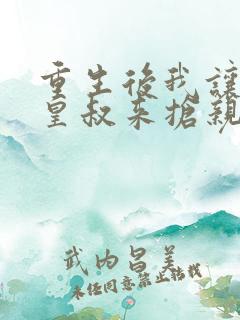 重生後我讓
皇叔來搶親
武內昌美
未經同意禁止轉載